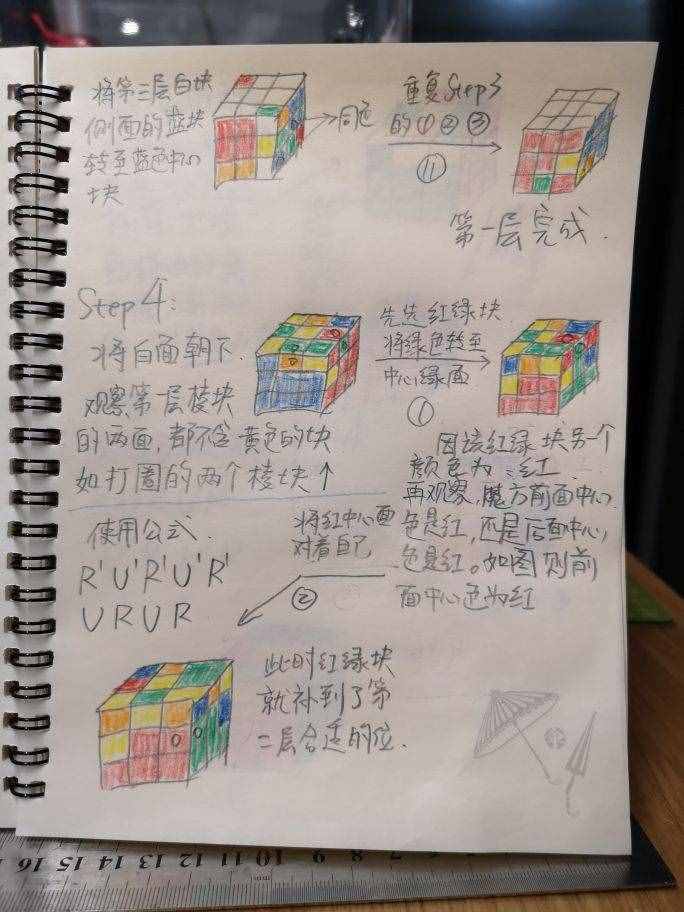 将第三层白块
侧面的蓝块
转至蓝色中心
块
同色
重复Step3
的①②③
⑪
第一层完成.
Step 4:
将白面朝下.
观察第一层棱块
的两面,都不含黄色的块
如打圈的两个棱块↑
先选红绿块
将绿色转至
中心绿面
①
因该红绿块另一个
颜色为:红
再观察,魔方前面中心
色是红,还是后面中心,
色是红。如图则前
面中心色为红
使用公式.
R'U'R'U'R'
URUR
将红中心面
对着自己
②
此时红绿块
就补到了第
二层合适的位.
16 15 14 13 12 11 10 9 8 7 6